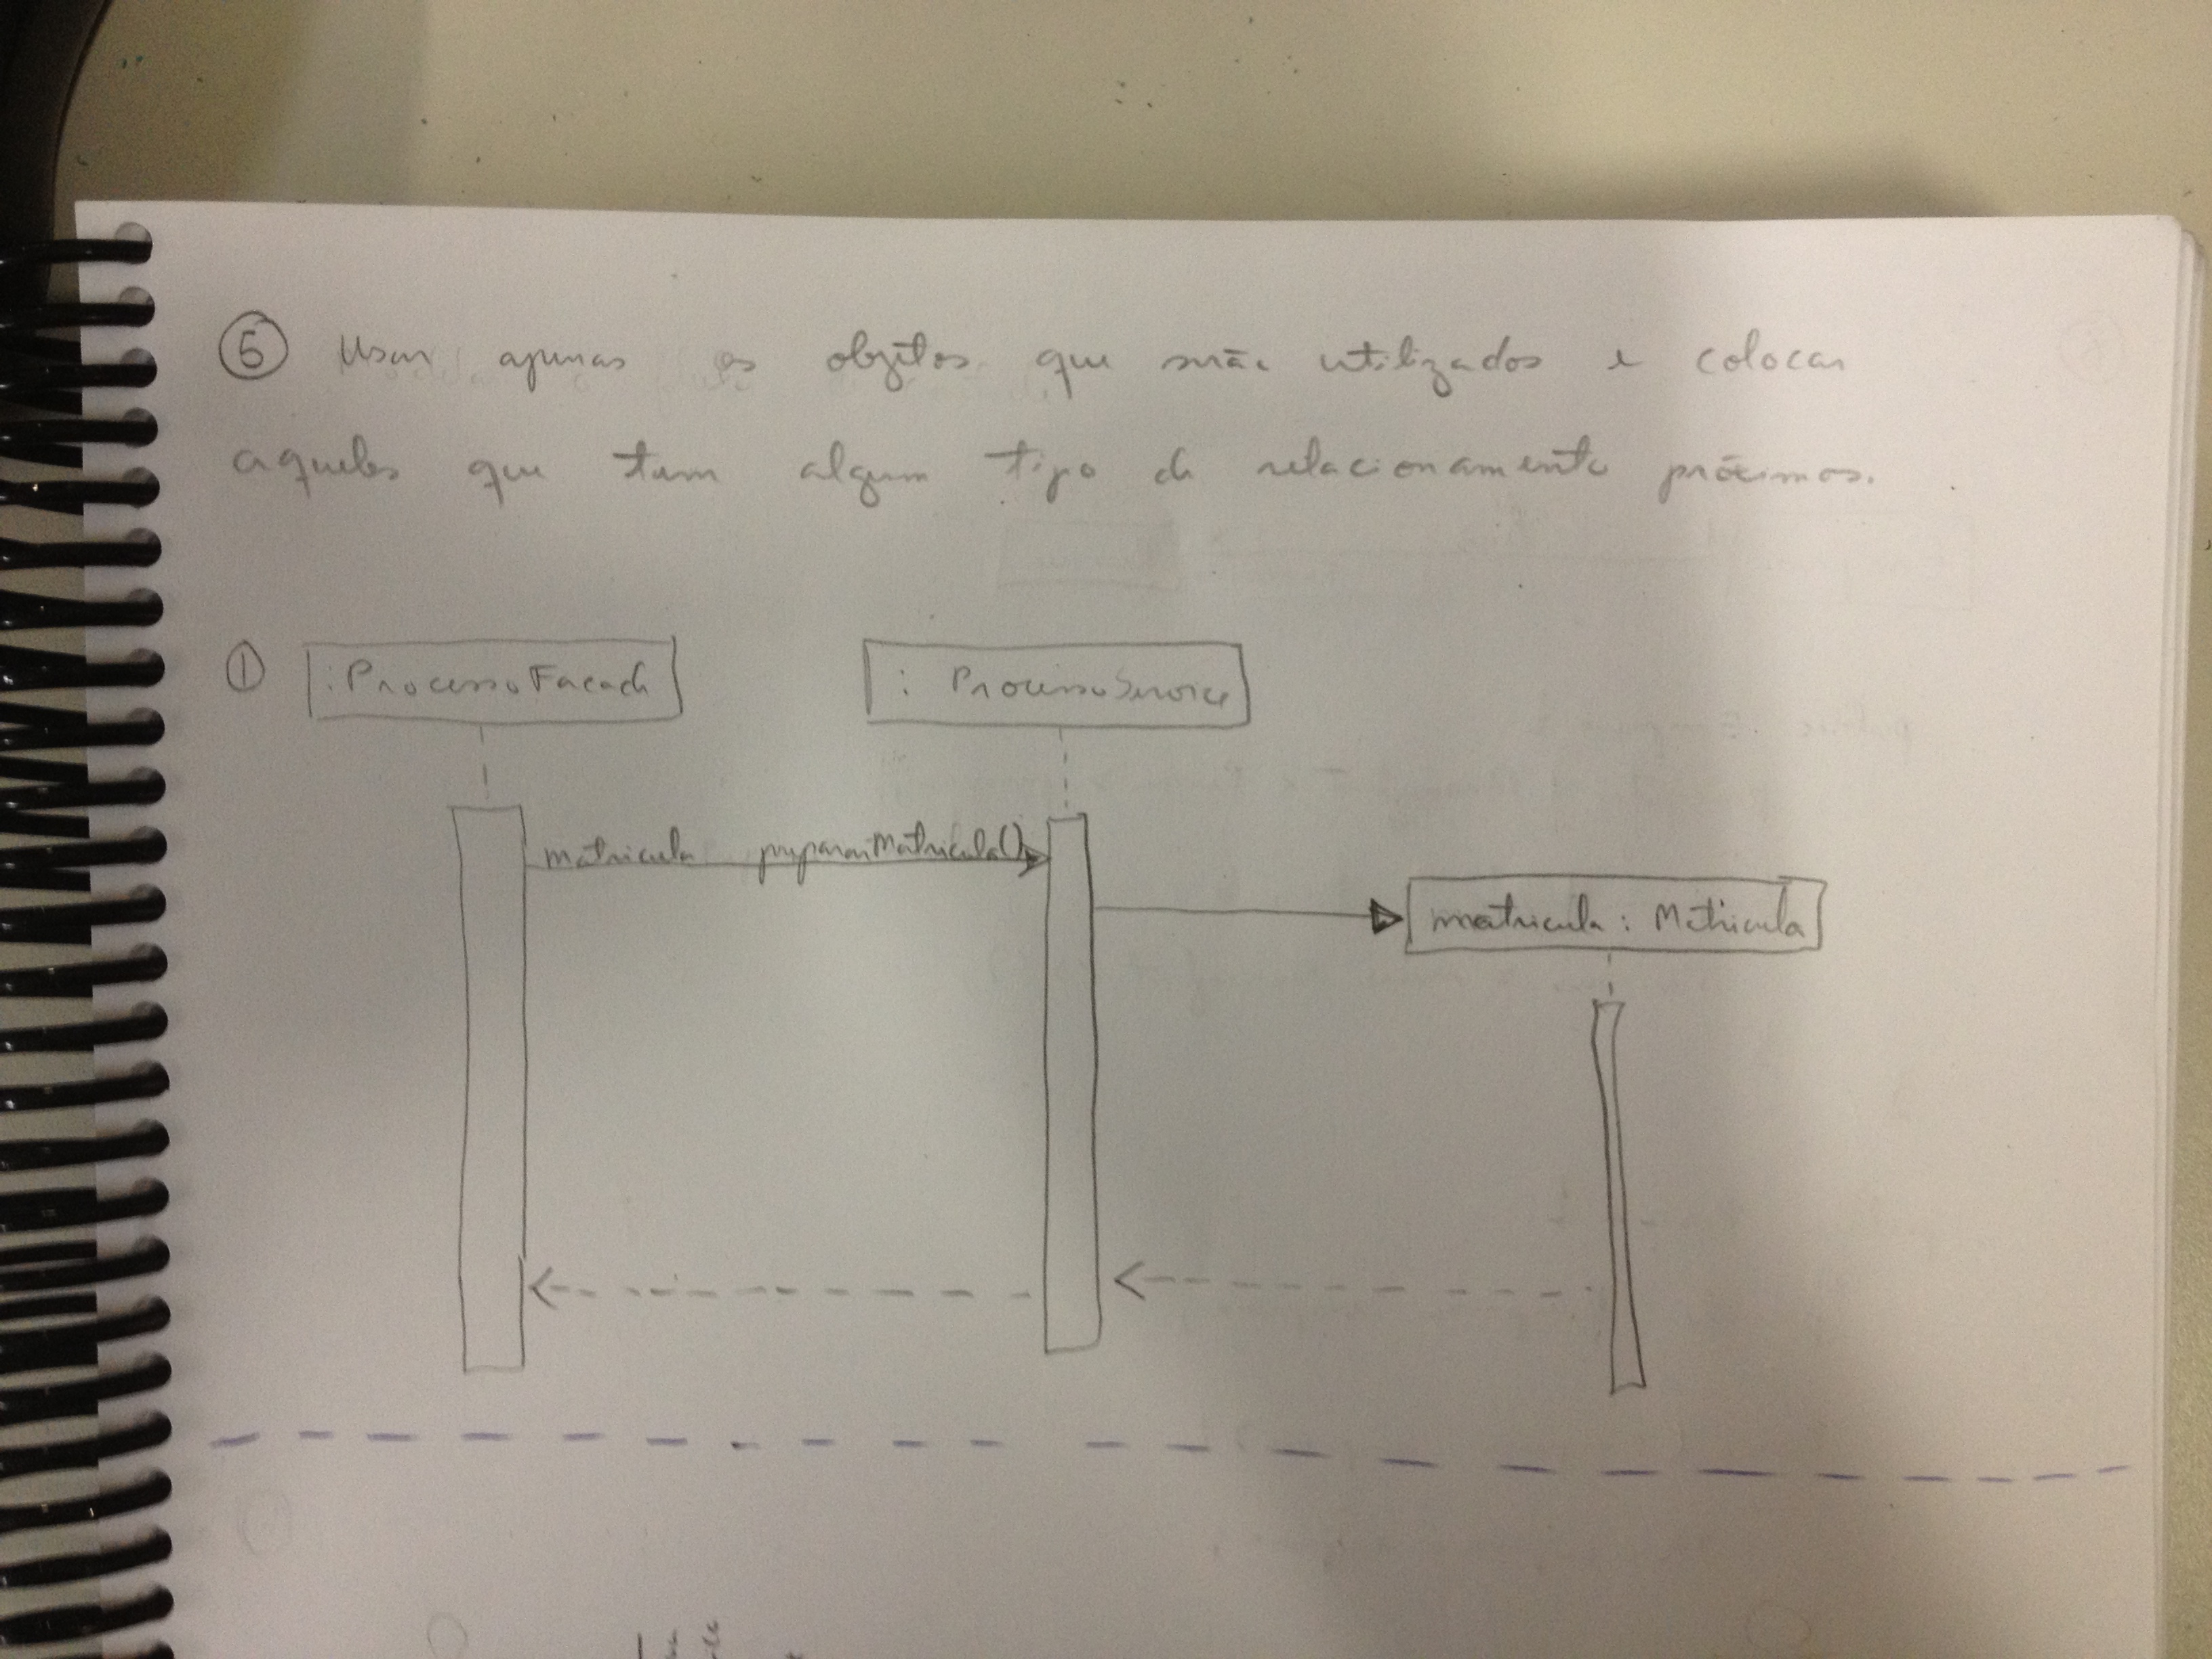 ⑥ Usar apenas os objetos que serão utilizados e colocar
aqueles que tem algum tipo de relacionamento próximos.
① :ProcessoFacade : ProcessoService
matricula prepararMatricula()
matricula : Matricula